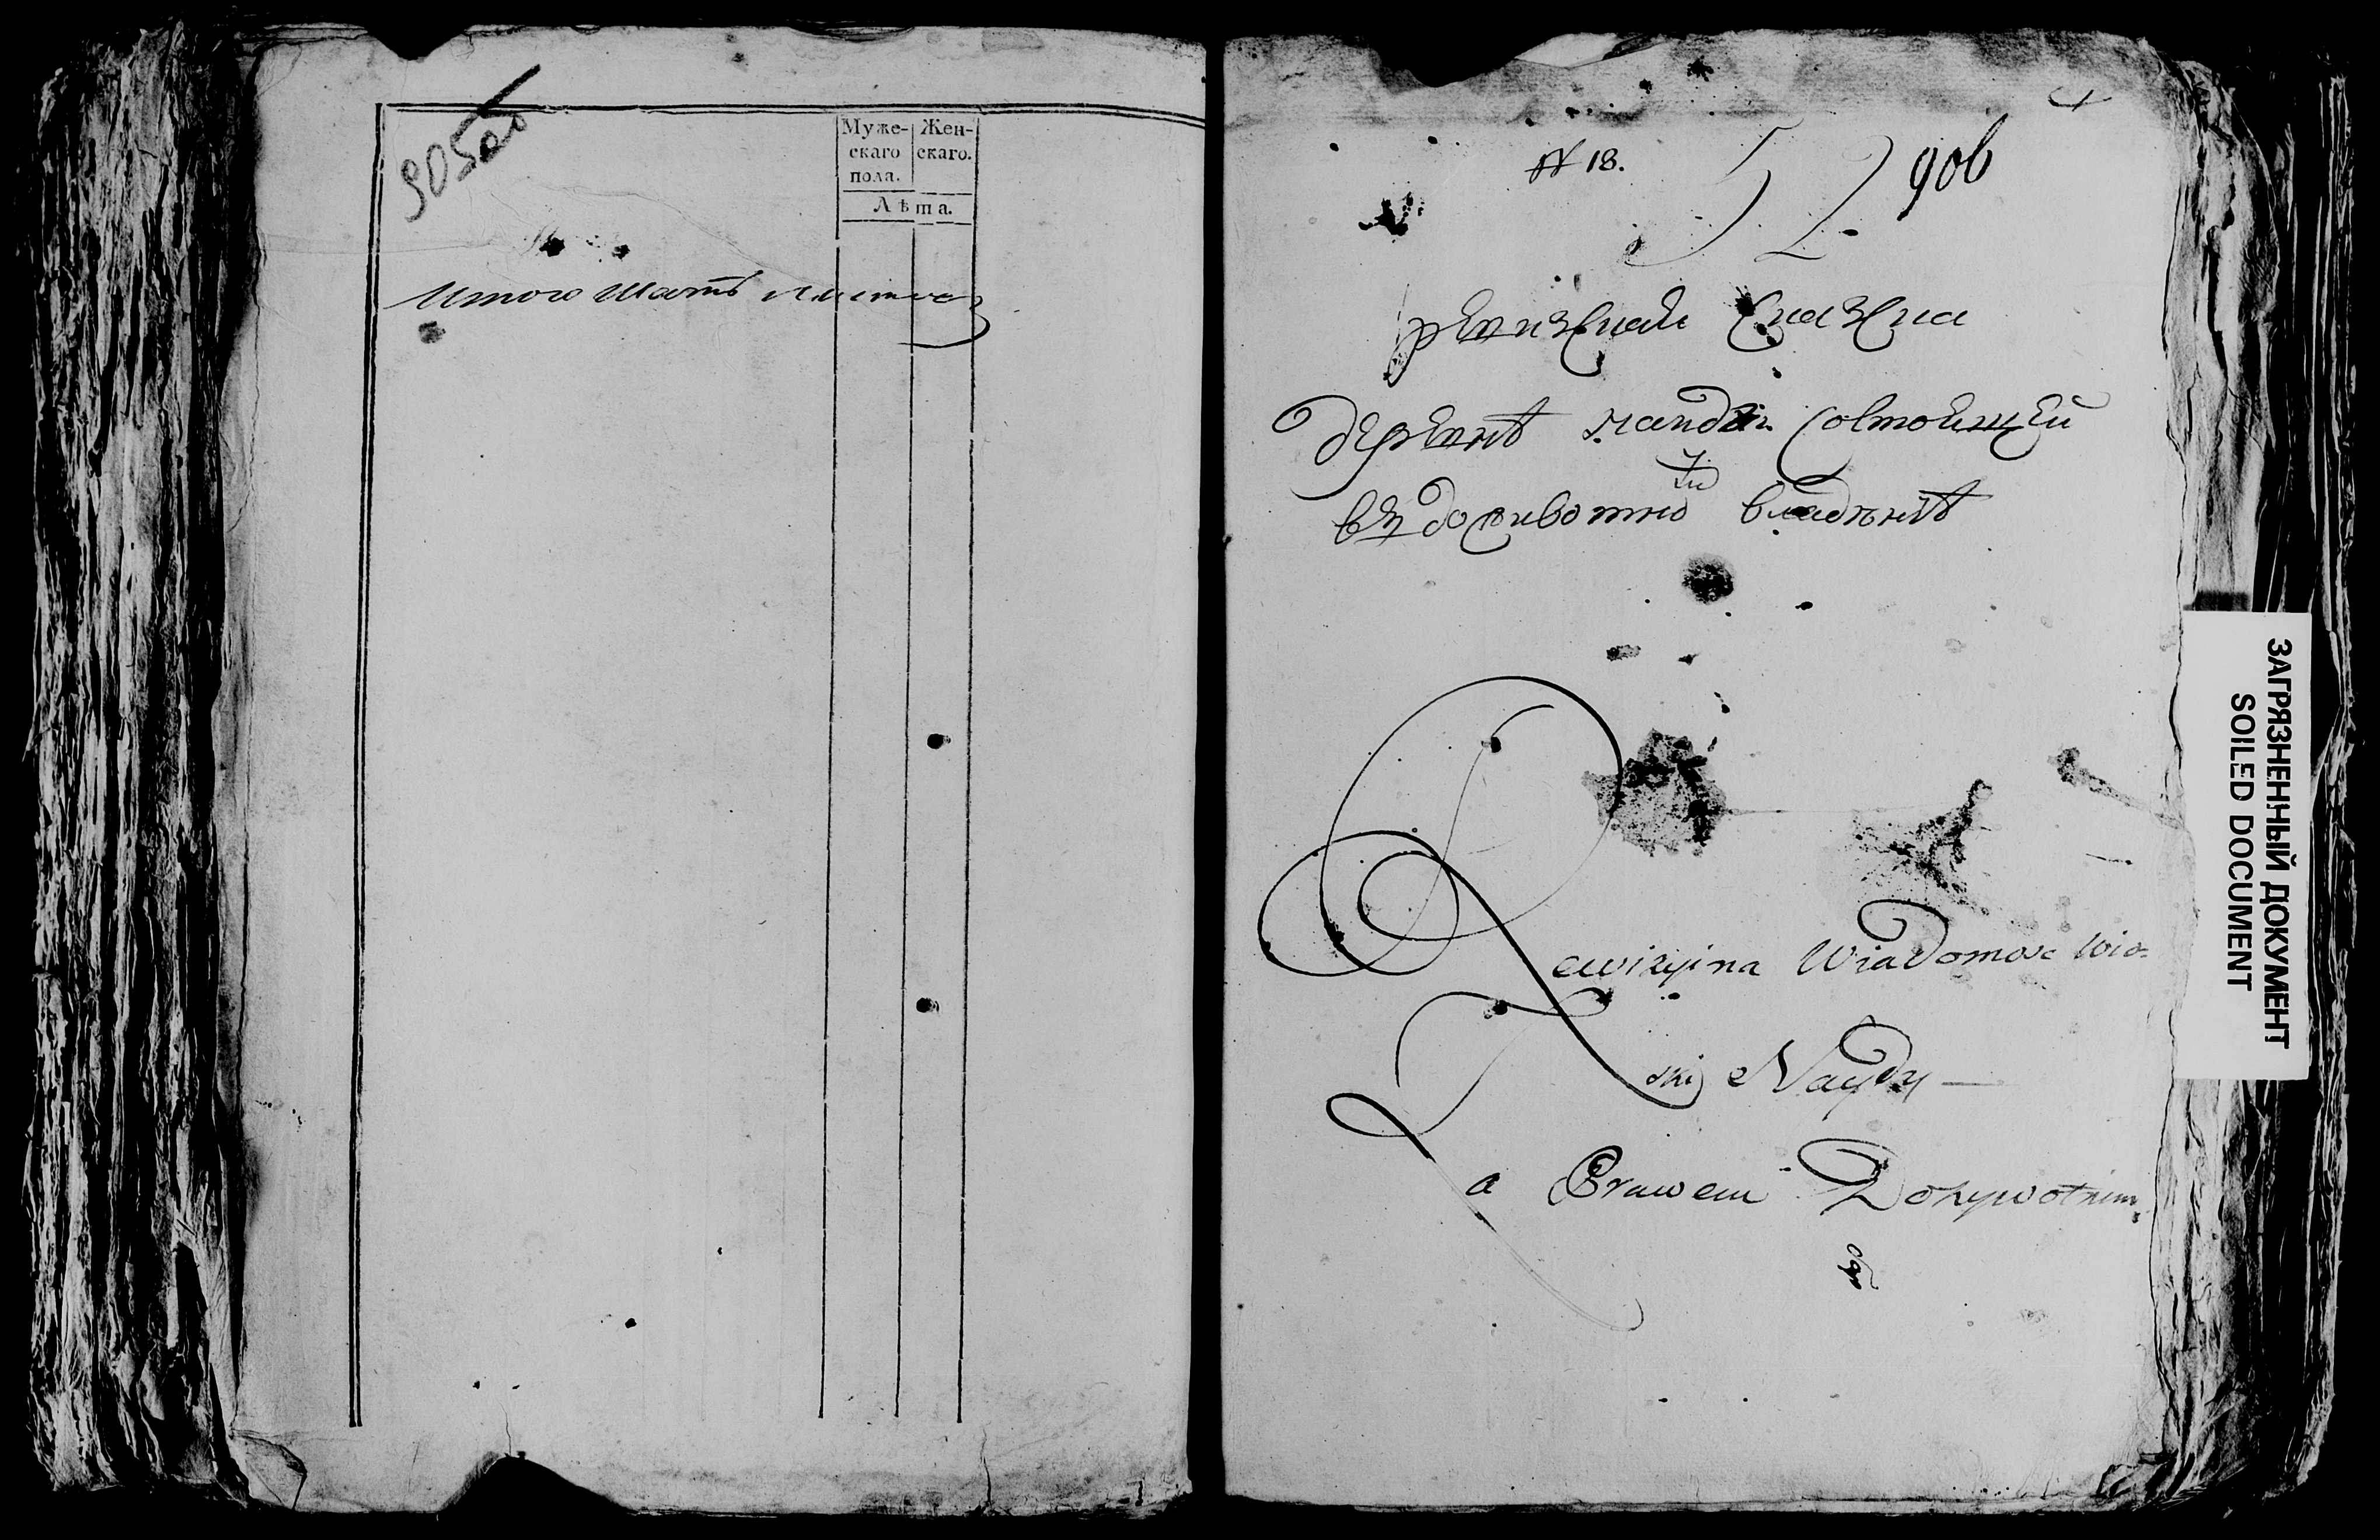 905об
Муже- Жен-
скаго скаго.
пола.
Лѣта.
Итого шесть листовъ
№ 18. 52 906
ревизская сказка
деревнѣ найды состоящей
въ доживотномъ владѣнѣ
Rewizyina Wiadomosc Wio-
ski Naydy
a Prawem Dożywotnim
ЗАГРЯЗНЕННЫЙ ДОКУМЕНТ
SOILED DOCUMENT